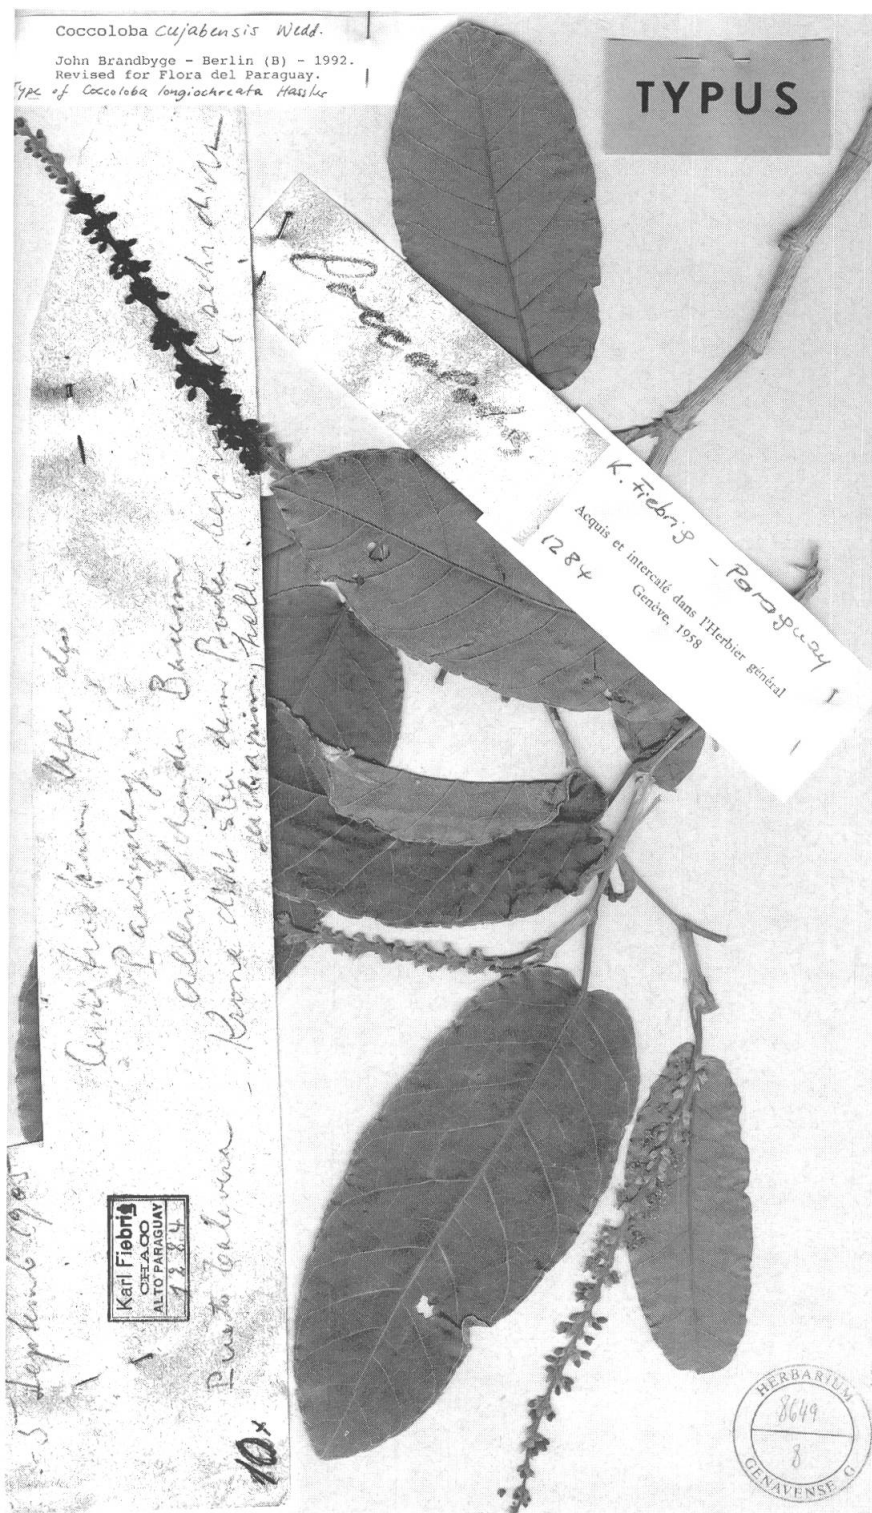 Coccoloba cujabensis Wedd.
John Brandbyge - Berlin (B) - 1992.
Revised for Flora del Paraguay.
Type of Coccoloba longiochreata Hassler
TYPUS
Coccoloba
K. Fiebrig - Paraguay
Acquis et intercalé dans l'Herbier général
Genève, 1958
1284
Ufer des
Paraguay
Baum
Krone dicht über dem Boden
hell.
Puerto Talavera
Septemb 1905
Karl Fiebrig
CHACO
ALTO PARAGUAY
1284
10x
HERBARIUM
8649
8
GENAVENSE G